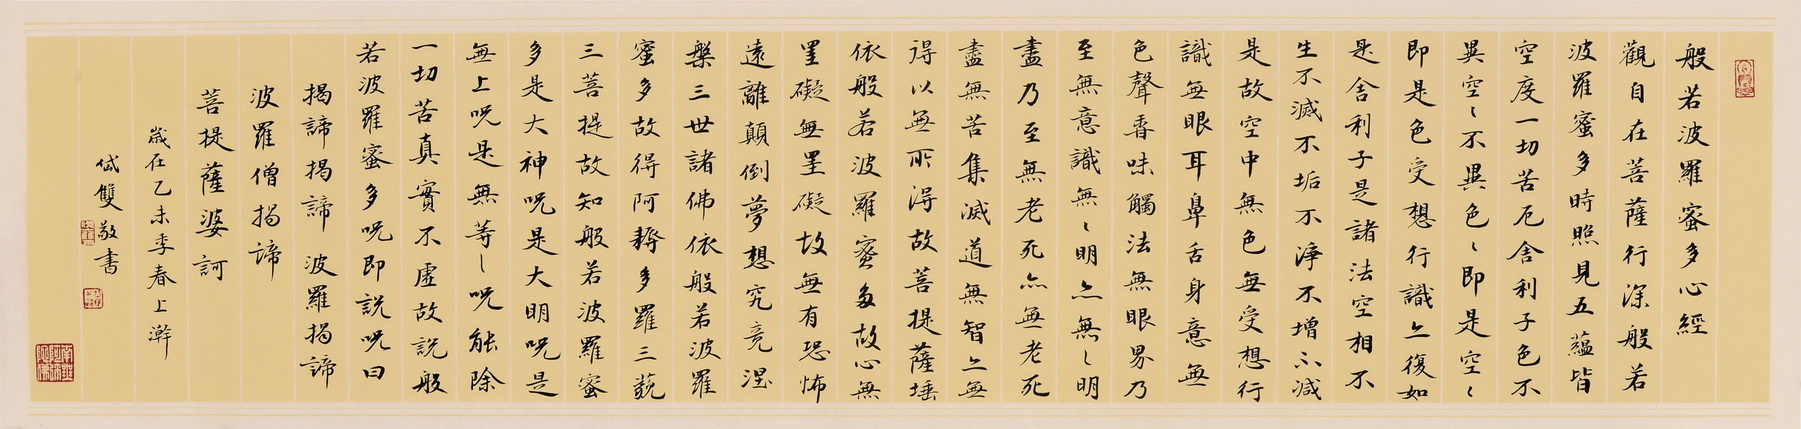 般若波羅蜜多心經
觀自在菩薩行深般若
波羅蜜多時照見五蘊皆
空度一切苦厄舍利子色不
異空〻不異色〻即是空〻
即是色受想行識亦復如
是舍利子是諸法空相不
生不滅不垢不淨不增不減
是故空中無色無受想行
識無眼耳鼻舌身意無
色聲香味觸法無眼界乃
至無意識無〻明亦無〻明
盡乃至無老死亦無老死
盡無苦集滅道無智亦無
得以無所得故菩提薩埵
依般若波羅蜜多故心無
罣礙無罣礙故無有恐怖
遠離顛倒夢想究竟涅
槃三世諸佛依般若波羅
蜜多故得阿耨多羅三藐
三菩提故知般若波羅蜜
多是大神咒是大明咒是
無上咒是無等〻咒能除
一切苦真實不虛故說般
若波羅蜜多咒即說咒曰
揭諦揭諦 波羅揭諦
波羅僧揭諦
菩提薩婆訶
歲在乙未季春上澣
雙敬書
南無阿彌陀佛